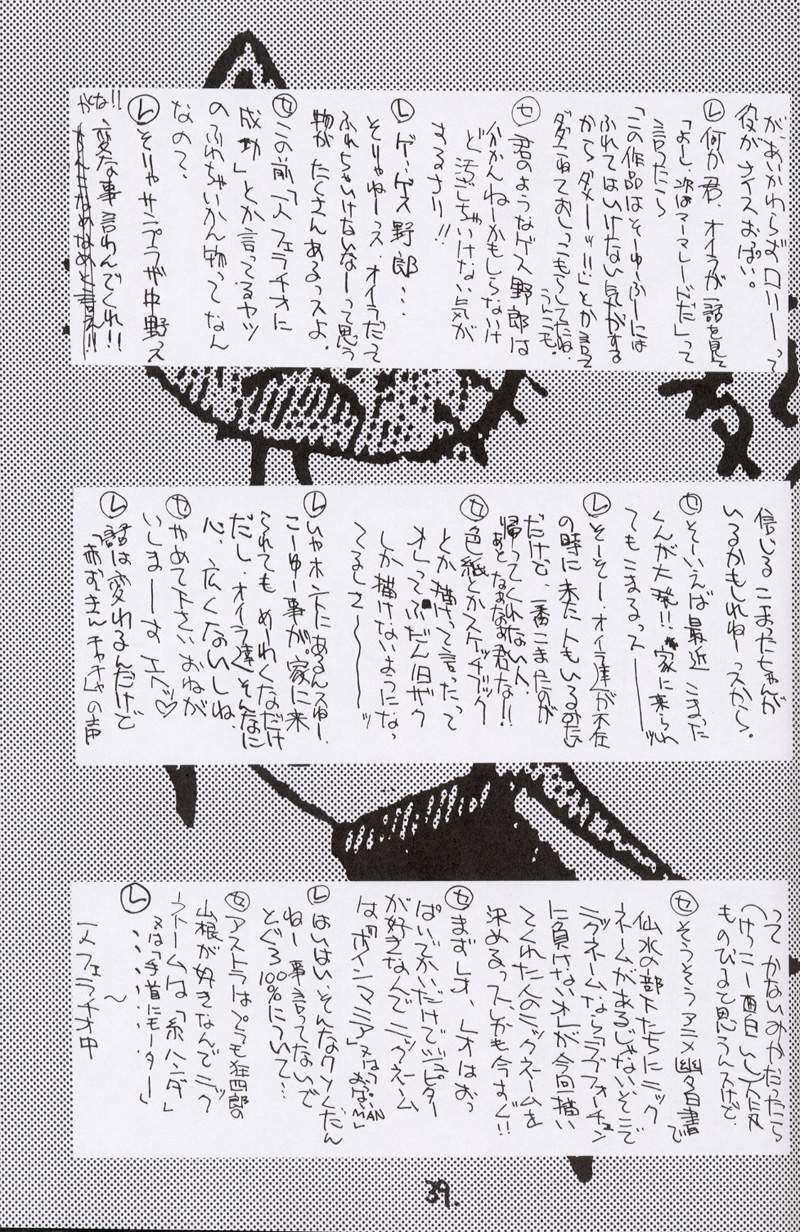 があいかわらずロリーって
役がナイスおっぱい。
Ⓛ何か君、オイラが話を見て
「よし、次はマーマレードだ」って
言ったら
「この作品はそーゆーふーには
ふれてはいけない気がする
からダメーッ!!」とか言って
ダダこねておしっこもらしてたね。
うらにも。
㋝君のようなゲス野郎は
かかんねーかもしらないけ
ど汚しちゃいけない気が
するさり!!
Ⓛゲ、ゲス野郎…
そりゃねーっス、オイラだって
ふれちゃいけないなーって思う
物がたくさんあるっスよ。
㋝この前「一人フェラチオに
成功」とか言ってるヤツ
のふれちゃいかん物ってなん
なの?
Ⓛそりゃサンプラザ中野っス
がな!!
変な事言わんでくれ!!
信じるこまったちゃんが
いるかもしれねーっスから。
㋝そーいえば最近こまった
くんが大発!!家に来られ
てもこまるっスーッ
Ⓛそーそー、オイラ達が不在
の時に来た人もいるみたい
だけど、一番こまったのが
帰ってくれない人、
あとなめなめ君な!!
㋝色紙とかスケッチブック
とか描けって言ったって
オレってふだん旧ザク
しか描けないようになっ
てるしさーーッ
Ⓛいやホントにあるんスゆー、
こーゆー事が。家に来
られてもめーわくなだけ
だし、オイラ達そんなに
心、広くないしね。
㋝やめて下さいおねが
いしまーす エヘ♡
Ⓛ話は変わるんだけど
「赤ずきんチャチャ」の声
ってかないみかだったら
(けっこー面白いし)人気
ものびるて思うんスけど。
㋝そうそうアニメ幽遊白書で
仙水の部下たちにニック
ネームがあるじゃないそこで
ニックネームならラブフォーチュン
に負けないオレが今回描い
てくれた人のニックネームを
決めるっス しかも今すぐ!!
㋝まずレオ、レオはおっ
ぱいでかいだけでジュピター
が好きなんでニックネーム
は「ボインマニア」又は「おっぱいMAN」
Ⓛはいはい、そんなクソくだん
ねー事言ってないで
どぐろ100%について…
㋝アストラはぷっつん狂四郎の
山根が好きなんでニック
ネームは「糸ハンダ」
又は「手首にモーター」
Ⓛ……
一人フェラチオ中
〜
39.